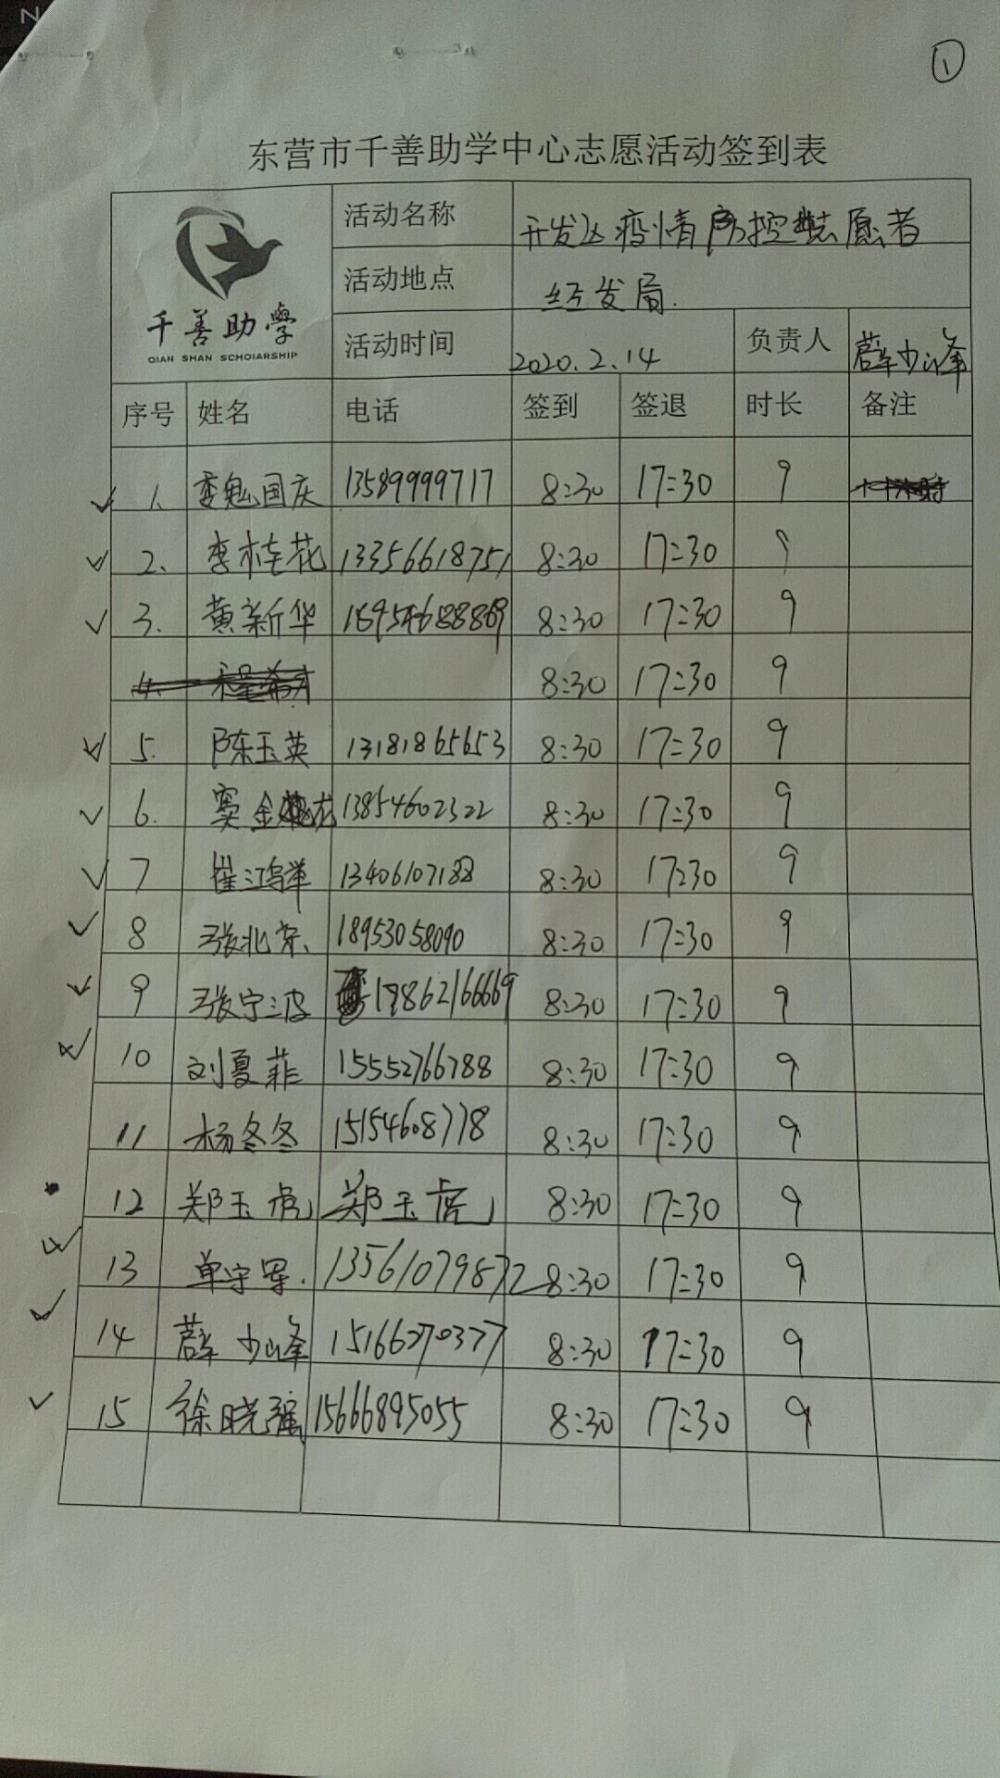 ①
东营市千善助学中心志愿活动签到表
千善助學
QIAN SHAN SCHOIARSHIP
活动名称 开发区疫情防控志愿者
活动地点 经发局.
活动时间 2020.2.14 负责人 薛少峰
序号 姓名 电话 签到 签退 时长 备注
1. 魏国庆 13589999717 8:30 17:30 9
2. 李桂花 13356618751 8:30 17:30 9
3. 黄新华 8:30 17:30 9
4. 8:30 17:30 9
5. 陈玉英 13181865653 8:30 17:30 9
6. 窦金龙 13854602322 8:30 17:30 9
7 崔鸿举 13406107188 8:30 17:30 9
8 张北京 18953058090 8:30 17:30 9
9 张宁波 8:30 17:30 9
10 刘夏菲 15552766788 8:30 17:30 9
11 杨冬冬 15154608778 8:30 17:30 9
12 郑玉虎 郑玉虎 8:30 17:30 9
13 单宇军. 13561079872 8:30 17:30 9
14 薛少峰 15166270377 8:30 17:30 9
15 徐晓强 15666895055 8:30 17:30 9